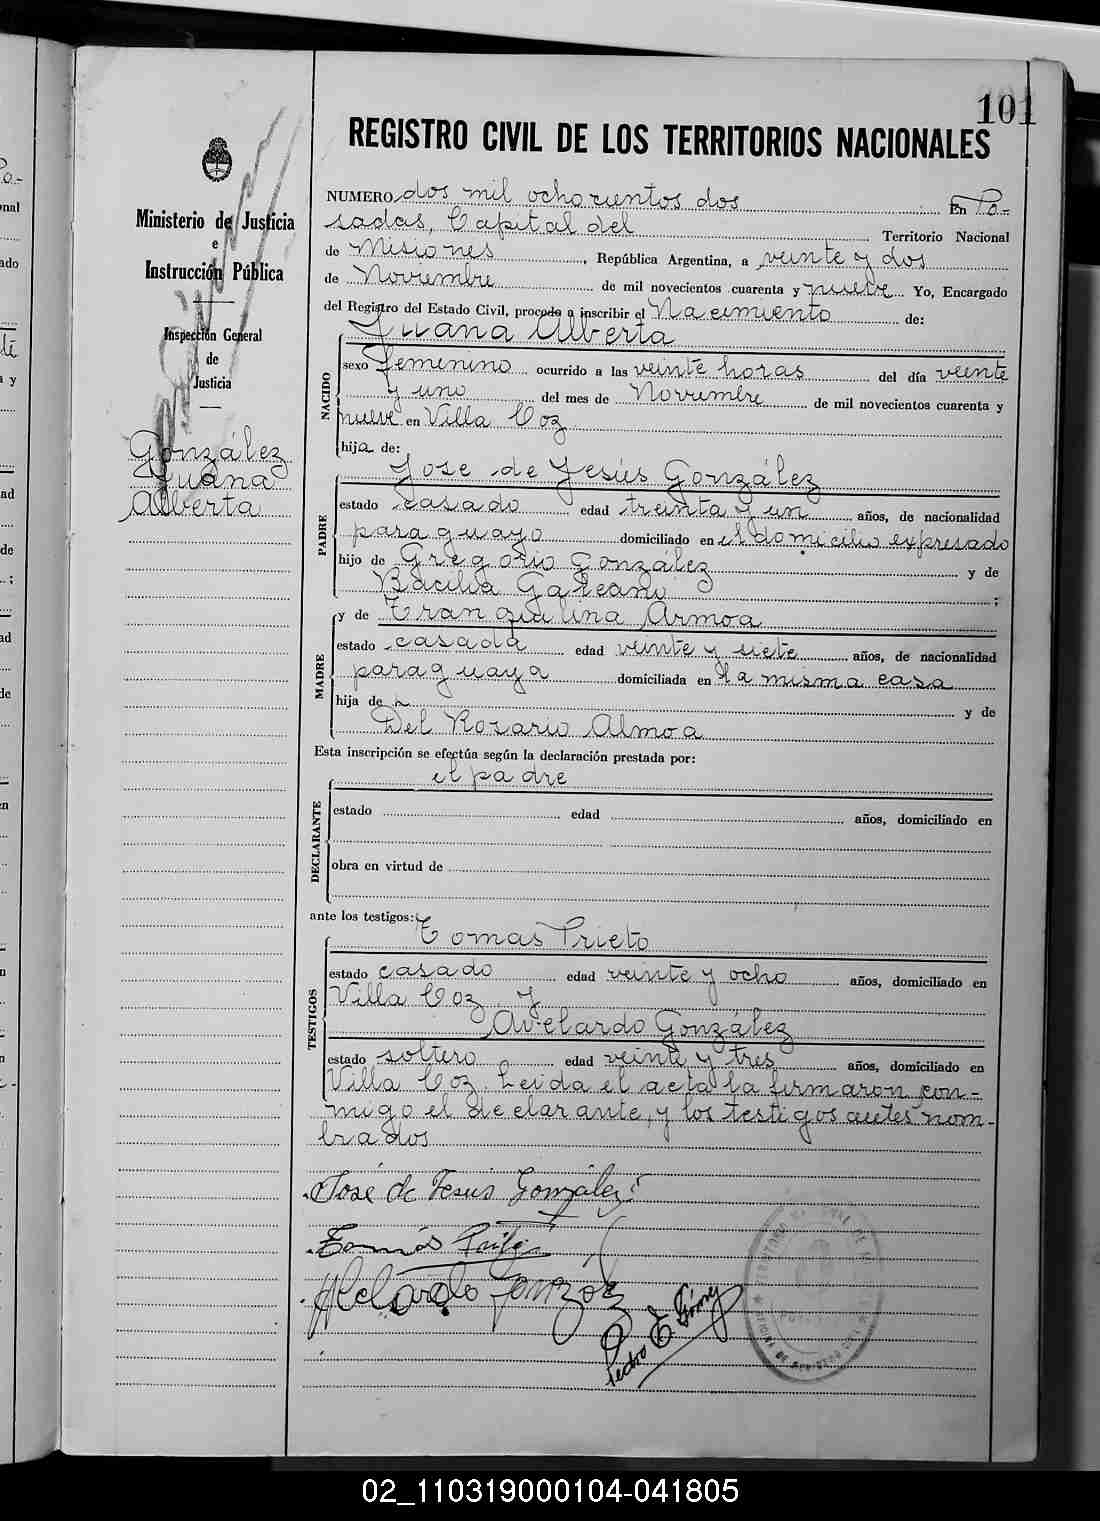 101
REGISTRO CIVIL DE LOS TERRITORIOS NACIONALES
Ministerio de Justicia
e
Instrucción Pública
Inspección General
de
Justicia
González
Juana
Alberta
NUMERO dos mil ochocientos dos En Po-
sadas, Capital del Territorio Nacional
de Misiones, República Argentina, a veinte y dos
de Noviembre de mil novecientos cuarenta y nueve Yo, Encargado
del Registro del Estado Civil, procedo a inscribir el Nacimiento de:
Juana Alberta
NACIDO
sexo femenino ocurrido a las veinte horas del día veinte
y uno del mes de Noviembre de mil novecientos cuarenta y
nueve en Villa Coz
hija de:
Jose de Jesús González
PADRE
estado casado edad treinta y un años, de nacionalidad
paraguayo domiciliado en el domicilio expresado
hijo de Gregorio González y de
Bacilia Galeano ;
y de Tranquilina Armoa
MADRE
estado casada edad veinte y siete años, de nacionalidad
paraguaya domiciliada en la misma casa
hija de y de
Del Rozario Almoa
Esta inscripción se efectúa según la declaración prestada por:
el padre
DECLARANTE
estado edad años, domiciliado en
obra en virtud de
ante los testigos:
Tomas Prieto
TESTIGOS
estado casado edad veinte y ocho años, domiciliado en
Villa Coz y
Avelardo González
estado soltero edad veinte y tres años, domiciliado en
Villa Coz. Leida el acta la firmaron con-
migo el declarante, y los testigos antes nom-
brados
José de Jesús González
Tomás
Pedro E.
02_110319000104-041805